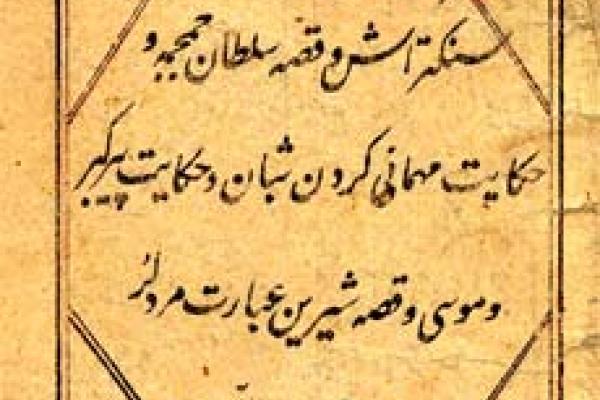 سنگتراش و قصه سلطان جمجمه و
حکایت مهمانی کردن شبان و حکایت پیر گبر
و موسی و قصه شیرین عبارت مرد